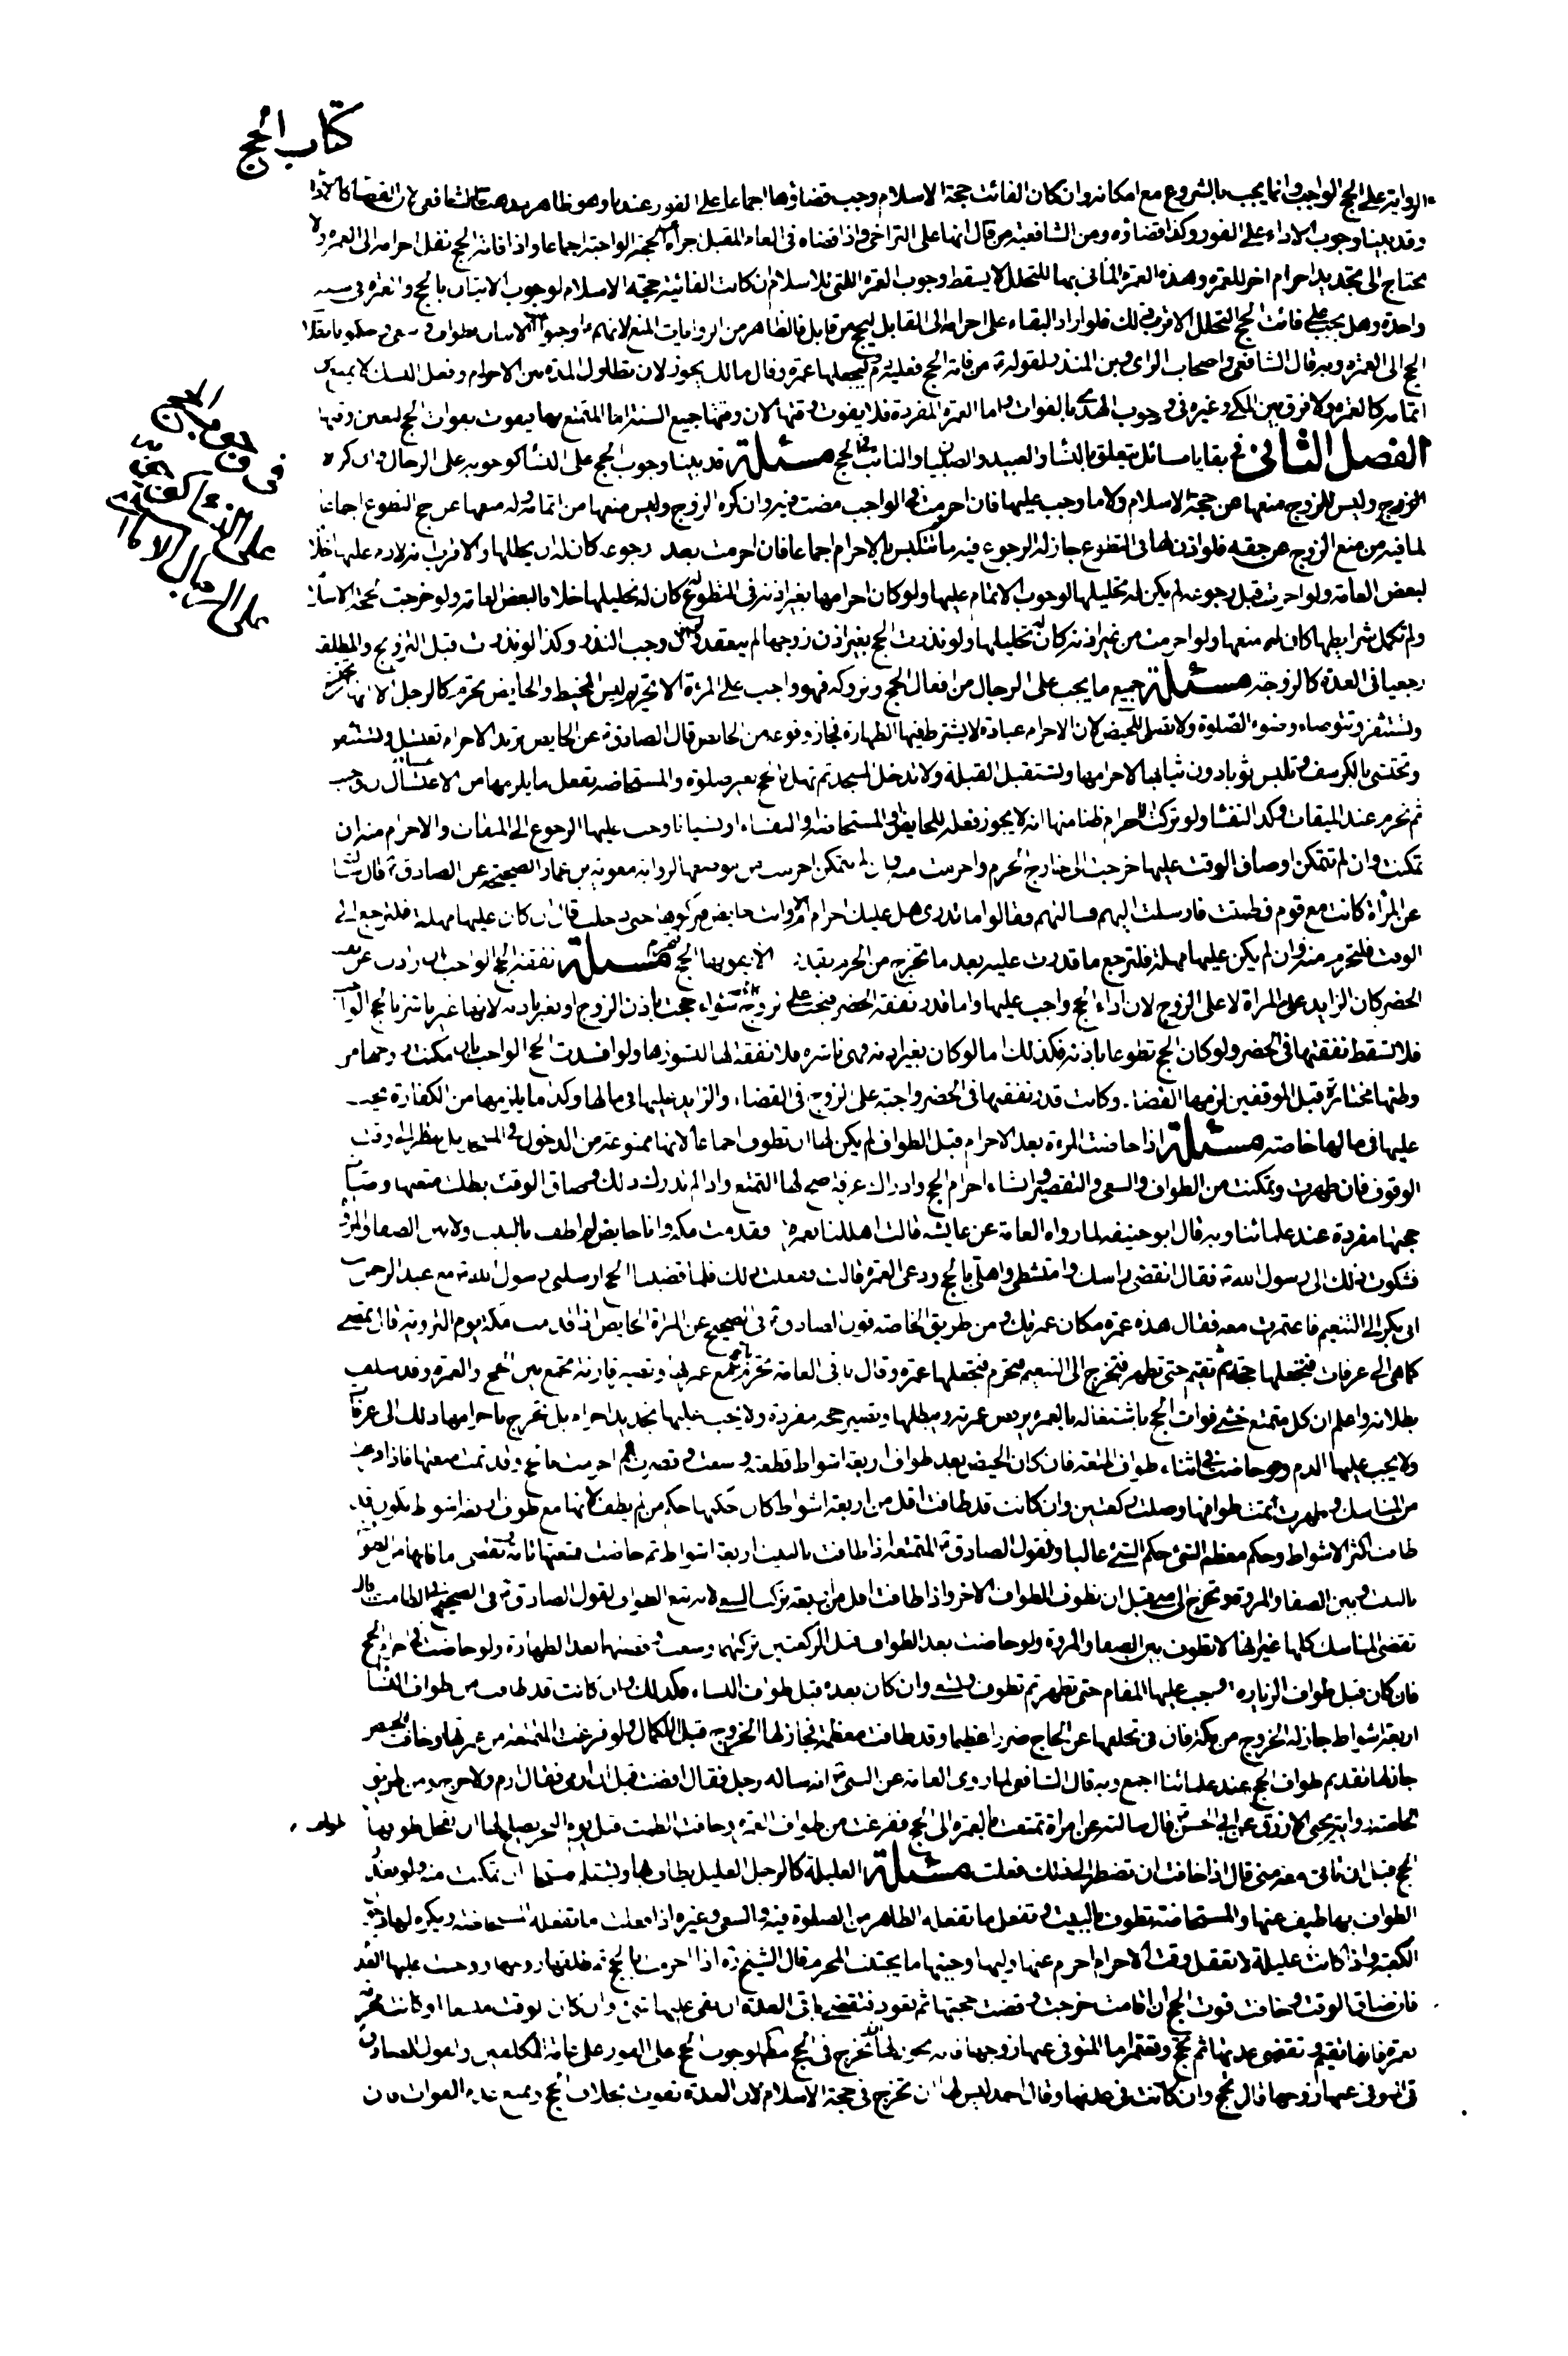 كتاب الحج
الرواية على الحج الواجب وانما يجب بالشروع مع امكانه وان كان الفائت حجة الاسلام وجب قضاؤها اجماعا على الفور عندنا وهو ظاهر مذهب الشافعي لان القضاء كالاداء
وقد بينا وجوب الاداء على الفور وكذا قضاؤه ومن الشافعية من قال انها على التراخي واذا قضاه في العام المقبل اجزأه عن الحجة الواجبة اجماعا واذا فاته الحج نقل احرامه الى العمرة ولا
يحتاج الى تجديد احرام اخر للعمرة وهذه العمرة المأتي بها للتحلل لا يسقط وجوب العمرة التي للاسلام ان كانت الفائتة حجة الاسلام لوجوب الاتيان بالحج والعمرة في سنة
واحدة وهل يجب على فائت الحج التحلل الاقرب ذلك فلو اراد البقاء على احرامه الى القابل ليحج من قابل فالظاهر من الروايات المنع لانهم اوجبوا الاتيان بطواف وسعي
الحج الى العمرة وبه قال الشافعي واصحاب الراي وابن المنذر لقوله من فاته الحج فعليه دم وليجعلها عمرة وقال مالك يجوز لان تطاول المدة بين الاحرام وفعل النسك لا يمنع
اتمامه كالعمرة ولا فرق بين المكي وغيره في وجوب الهدي بالفوات واما العمرة المفردة فلا يفوت وقتها لان وقتها جميع السنة اما المتمتع بها يفوت بفوات الحج لتعين وقتها
الفصل الثاني في بقايا مسائل تتعلق بالنساء والعبيد والصبيان والنائب في الحج مسئلة قد بينا وجوب الحج على النساء كوجوبه على الرجال وان كره
الزوج وليس للزوج منعها عن حجة الاسلام ولا ما وجب عليها فان احرمت في الواجب مضت فيه وان كره الزوج وليس منعها من اتمامه وله منعها عن حج التطوع اجماعا
لما فيه من منع الزوج عن حقه فلو اذن لها في التطوع جاز له الرجوع فيه ما لم تتلبس بالاحرام اجماعا فان احرمت بعد رجوعه كان له ان يحللها والاقرب انه لا دم عليها خلافا
لبعض العامة ولو احرمت قبل رجوعه لم يكن له تحليلها لوجوب الاتمام عليها ولو كان احرامها بغير اذنه في التطوع كان له تحليلها خلافا لبعض العامة ولو خرجت لحجة الاسلام
ولم تكمل شرايطها كان له منعها ولو احرمت من غير اذنه كان له تحليلها ولو نذرت الحج بغير اذن زوجها لم ينعقد وجب النذر وكذا لو نذرت قبل التزويج والمطلقة
رجعيا في العدة كالزوجة مسئلة جميع ما يجب على الرجال من افعال الحج وتروكه فهو واجب على المرءة الا تحريم لبس المخيط والحايض تحرم كالرجل الا انها تحتشي
وتستثفر وتتوضاء وضوء الصلوة ولا تصلي للحيض لان الاحرام عبادة لا يشترط فيها الطهارة فجاز وقوعه من الحائض قال الصادق عن الحايض تريد الاحرام تغتسل وتستثفر
وتحتشي بالكرسف وتلبس ثوبا دون ثيابها لاحرامها وتستقبل القبلة ولا تدخل المسجد ثم تهل بالحج بغير صلوة والمستحاضة تفعل ما يلزمها من الاغتسال
ثم تحرم عند الميقات وكذا النفساء ولو تركت الاحرام ظنا منها انه لا يجوز فعله للحايض والمستحاضة والنفساء او نسيانا وجب عليها الرجوع الى الميقات والاحرام منه ان
تمكنت وان لم تتمكن او ضاق الوقت عليها خرجت الى خارج الحرم واحرمت منه وان لم تتمكن احرمت من موضعها لرواية معوية بن عمار الصحيحة عن الصادق قال سئلت
عن امرأة كانت مع قوم فطمثت فارسلت اليهم فسالتهم فقالوا ما ندري هل عليك احرام ام لا وانت حايض فتركوها حتى دخلت قال ان كان عليها مهلة فلترجع الى
الوقت فلتحرم منه وان لم يكن عليها مهلة فلترجع ما قدرت عليه بعد ما تخرج من الحرم بقدر لا يفوتها الحج فتحرم مسئلة نفقة الحج الواجب ان زادت عن نفقة
الحضر كان الزايد على المراة لا على الزوج لان اداء الحج واجب عليها واما قدر نفقة الحضر فتجب على زوجها سواء حجت باذن الزوج او بغير اذنه لانها غير ناشز بالحج الواجب
فلا تسقط نفقتها في الحضر ولو كان الحج تطوعا باذنه فكذلك اما لو كان بغير اذنه فهي ناشزة فلا نفقة لها للنشوزها ولو افسدت الحج الواجب بان مكنت زوجها من
وطئها مختارة قبل الموقفين لزمها القضاء وكانت قدر نفقتها في الحضر واجبة على الزوج في القضاء والزايد عليها في مالها وكذا ما يلزمها من الكفارة يجب
عليها في مالها خاصة مسئلة اذا حاضت المرءة بعد الاحرام قبل الطواف لم يكن لها ان تطوف اجماعا لانها ممنوعة من الدخول في المسجد بل ينظر الى وقت
الوقوف فان طهرت وتمكنت من الطواف والسعي والتقصير وانشاء احرام الحج وادراك عرفة صح لها التمتع وان لم تدرك ذلك وضاق الوقت بطلت متعتها وصارت
حجتها مفردة عند علمائنا وبه قال ابو حنيفة لما رواه العامة عن عايشة قالت اهللنا بعمرة فقدمت مكة وانا حايض لم اطف بالبيت ولا بين الصفا والمروة
فشكوت ذلك الى رسول الله فقال انقضي راسك وامتشطي واهلي بالحج ودعي العمرة قالت ففعلت ذلك فلما قضينا الحج ارسلني رسول الله مع عبد الرحمن
ابي بكر الى التنعيم فاعتمرت معه فقال هذه عمرة مكان عمرتك ومن طريق الخاصة قول الصادق في الصحيح عن المراة الحايض اذا قدمت مكة يوم التروية قال تمضي
كما هي الى عرفات فتجعلها حجة ثم تقيم حتى تطهر فتخرج الى التنعيم فتحرم فتجعلها عمرة وقال باقي العامة تحرم بالحج مع عمرتها وتصير قارنة تجمع بين الحج والعمرة وقد سلف
بطلانه واعلم ان كل متمتع خشي فوات الحج باشتغاله بالعمرة يرفض عمرته ويبطلها وتصير حجة مفردة ولا يجب عليها تجديد احرام بل تخرج باحرامها ذلك الى عرفات
ولا يجب عليها الدم ولو حاضت في اثناء طواف المتعة فان كان الحيض بعد طواف اربعة اشواط قطعته وسعت وقصرت ثم احرمت بالحج وقد تمت متعتها فاذا فرغت
من المناسك وطهرت تمت طوافها وصلت ركعتين وان كانت قد طافت اقل من اربعة اشواط كان حكمها حكم من لم يطف لانها مع طواف اربعة اشواط تكون قد
طافت اكثر الاشواط وحكم معظم الشيء حكم الشيء غالبا ولقول الصادق المتمتعة اذا طافت بالبيت اربعة اشواط ثم حاضت فمتعتها تامة وتقضي ما فاتها من الطواف
بالبيت وبين الصفا والمروة وتخرج الى منى قبل ان تطوف الطواف الاخر واذا طافت اقل من اربعة تركت السعي لانه تبع الطواف لقول الصادق في الصحيح الطامث قال
تقضي المناسك كلها غير انها لا تطوف بين الصفا والمروة ولو حاضت بعد الطواف قبل الركعتين تركتهما وسعت وقضتهما بعد الطهارة ولو حاضت في احرام الحج
فان كان قبل طواف الزيارة وجب عليها المقام حتى تطهر ثم تطوف وتسعى وان كان بعده قبل طواف النساء فكذلك وان كانت قد طافت من طواف النساء
اربعة اشواط جاز له الخروج من مكة فان في تخلفها عن الحاج ضررا عظيما وقد طافت معظمه فجاز لها الخروج قبل الاكمال ولو فرغت المتمتعة من عمرتها وخافت الحيض
جاز لها تقديم طواف الحج عند علمائنا اجمع وبه قال الشافعي لما روى العامة عن النبي انه ساله رجل فقال افضت قبل ان ارمي فقال ارم ولا حرج ومن طريق
الخاصة رواية يحيى الازرق عن ابي الحسن قال سالته عن امراة تمتعت بالعمرة الى الحج ففرغت من طواف العمرة وخافت الطمث قبل يوم النحر يصلح لها ان تعجل طوافها طواف
الحج قبل ان تاتي منى قال اذا خافت ان تضطر الى ذلك فعلت مسئلة العليلة كالرجل العليل يطاف بها وتستلم ان تمكنت منه ولو تعذر
الطواف بها طيف عنها والمستحاضة تطوف بالبيت وتفعل ما تفعله الطاهر من الصلوة فيه والسعي وغيره اذا فعلت ما تفعله المستحاضة ويكره لها دخول
الكعبة واذا كانت عليلة لا تعقل وقت الاحرام احرم عنها وليها وجنبها ما يجتنب المحرم قال الشيخ ره اذا احرمت بالحج ثم طلقها زوجها ووجبت عليها العدة
فان ضاق الوقت وخافت فوت الحج ان اقامت خرجت وقضت حجتها ثم تعود فتقضي باقي العدة ان بقي عليها شيء وان كان الوقت متسعا او كانت محرمة
بعمرة فانها تقيم وتقضي عدتها ثم تحج وتعتمر اما المتوفى عنها زوجها فانه يجوز لها ان تخرج في الحج مكملا لوجوب الحج على الفور على عامة المكلفين ولقول الصادق
في المتوفى عنها زوجها قال تحج وان كانت في عدتها وقال احمد ليس لها ان تخرج في حجة الاسلام لان العدة تفوت بخلاف الحج ويمنع عدم الفوات فان